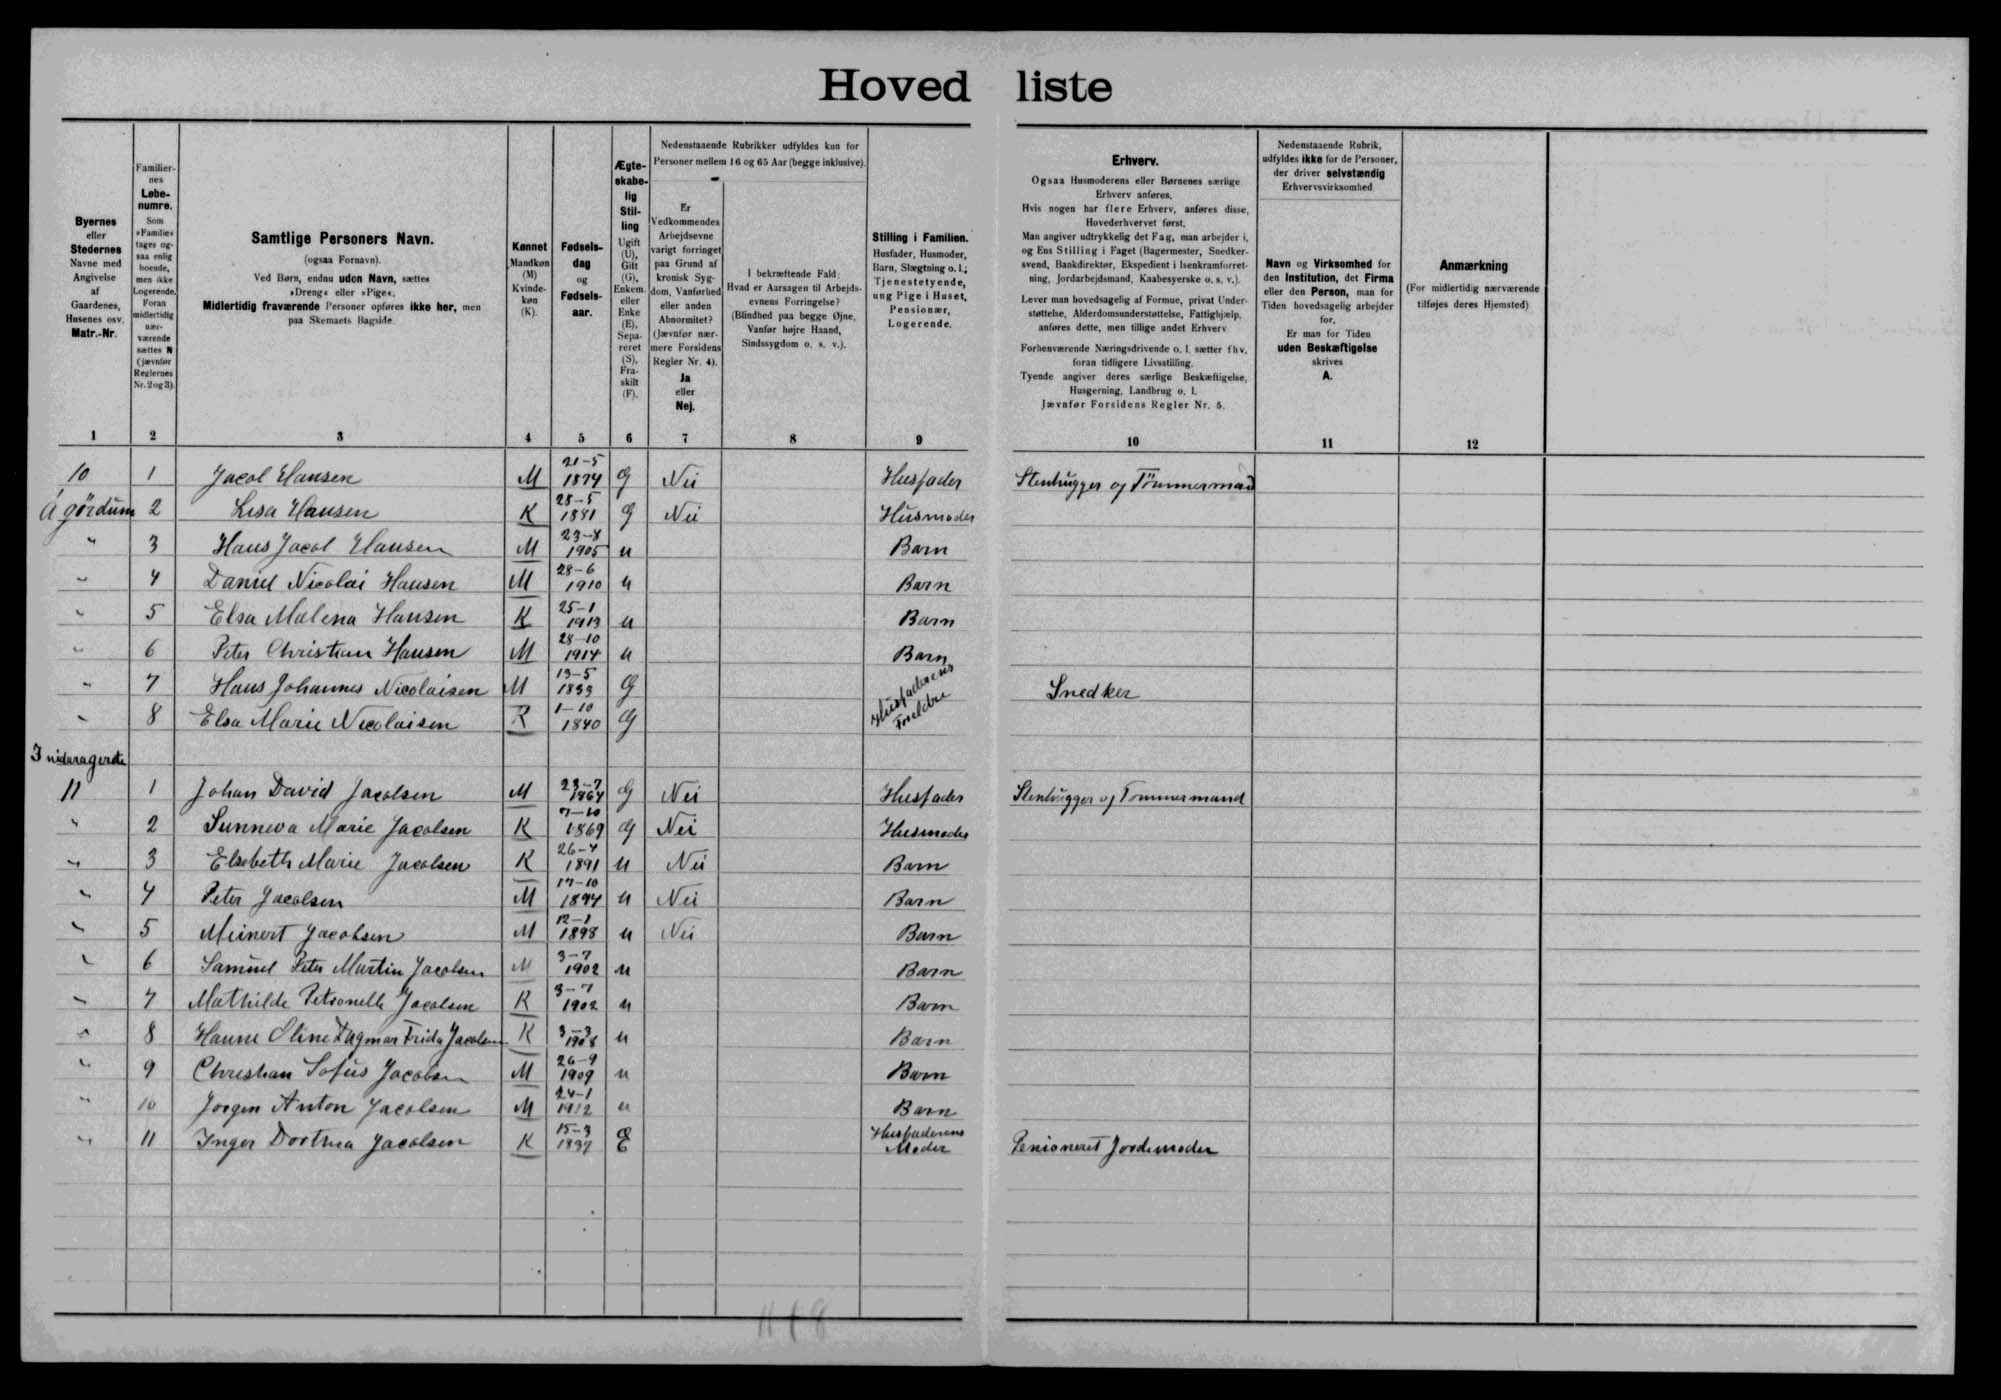 Hovedliste
Byernes
eller
Stedernes
Navne med
Angivelse
af
Gaardenes,
Husenes osv.
Matr.-Nr.
Familier-
nes
Løbe-
numre.
Som
»Familie«
tages og-
saa enlig
boende,
men ikke
Logerende.
Foran
midlertidig
nær-
værende
sættes N
(jævnfør
Reglernes
Nr. 2 og 3).
Samtlige Personers Navn.
(ogsaa Fornavn).
Ved Børn, endnu uden Navn, sættes
»Dreng« eller »Pige«.
Midlertidig fraværende Personer opføres ikke her, men
paa Skemaets Bagside.
Kønnet
Mandkøn
(M)
Kvinde-
køn
(K).
Fødsels-
dag
og
Fødsels-
aar.
Ægte-
skabe-
lig
Stil-
ling
Ugift
(U),
Gift
(G),
Enkem.
eller
Enke
(E),
Sepa-
reret
(S),
Fra-
skilt
(F).
Nedenstaaende Rubrikker udfyldes kun for
Personer mellem 16 og 65 Aar (begge inklusive).
Er
Vedkommendes
Arbejdsevne
varigt forringet
paa Grund af
kronisk Syg-
dom, Vanførhed
eller anden
Abnormitet?
(Jævnfør nær-
mere Forsidens
Regler Nr. 4).
Ja
eller
Nej.
I bekræftende Fald:
Hvad er Aarsagen til Arbejds-
evnens Forringelse?
(Blindhed paa begge Øjne,
Vanfør højre Haand,
Sindssygdom o. s. v.).
Stilling i Familien.
Husfader, Husmoder,
Barn, Slægtning o. l.;
Tjenestetyende,
ung Pige i Huset,
Pensionær,
Logerende.
Erhverv.
Ogsaa Husmoderens eller Børnenes særlige
Erhverv anføres.
Hvis nogen har flere Erhverv, anføres disse,
Hovederhvervet først.
Man angiver udtrykkelig det Fag, man arbejder i,
og Ens Stilling i Faget (Bagermester, Snedker-
svend, Bankdirektør, Ekspedient i Isenkramforret-
ning, Jordarbejdsmand, Kaabesyerske o. s. v.).
Lever man hovedsagelig af Formue, privat Under-
støttelse, Alderdomsunderstøttelse, Fattighjælp,
anføres dette, men tillige andet Erhverv
Forhenværende Næringsdrivende o. l. sætter fhv.
foran tidligere Livsstilling.
Tyende angiver deres særlige Beskæftigelse,
Husgerning, Landbrug o. l.
Jævnfør Forsidens Regler Nr. 5.
Nedenstaaende Rubrik,
udfyldes ikke for de Personer,
der driver selvstændig
Erhvervsvirksomhed
Navn og Virksomhed for
den Institution, det Firma
eller den Person, man for
Tiden hovedsagelig arbejder
for.
Er man for Tiden
uden Beskæftigelse
skrives
A.
Anmærkning
(For midlertidig nærværende
tilføjes deres Hjemsted)
1 2 3 4 5 6 7 8 9 10 11 12
10 1 Jacob Hansen M 21-5 1874 G Nei Husfader Stenhugger og Tömmermand
Á gördum 2 Lisa Hansen K 28-5 1881 G Nei Husmoder
" 3 Hans Jacob Hansen M 23-8 1905 u Barn
" 4 Daniel Nicolai Hansen M 28-6 1910 u Barn
" 5 Elsa Malena Hansen K 25-1 1913 u Barn
" 6 Peter Christian Hansen M 28-10 1914 u Barn
" 7 Hans Johannes Nicolaisen M 13-5 1833 G Husfaderens Forældre Snedker
" 8 Elsa Marie Nicolaisen K 1-10 1840 G
11 1 Johan David Jacobsen M 23-7 1864 G Nei Husfader Stenhugger og Tommermand
" 2 Sunneva Marie Jacobsen K 7-10 1869 G Nei Husmoder
" 3 Elsebeth Marie Jacobsen K 26-4 1891 u Nei Barn
" 4 Peter Jacobsen M 17-10 1894 u Nei Barn
" 5 Meinert Jacobsen M 12-1 1898 u Nei Barn
" 6 Samuel Peter Martin Jacobsen M 3-7 1902 u Barn
" 7 Mathilde Petronelle Jacobsen K 3-7 1902 u Barn
" 8 Hanne Oline Dagmar Frida Jacobsen K 3-3 1908 u Barn
" 9 Christian Sofus Jacobsen M 26-9 1909 u Barn
" 10 Jorgen Anton Jacobsen M 24-1 1912 u Barn
" 11 Inger Dorthea Jacobsen K 15-3 1837 E Husfaderens Moder Pensioneret Jordemoder